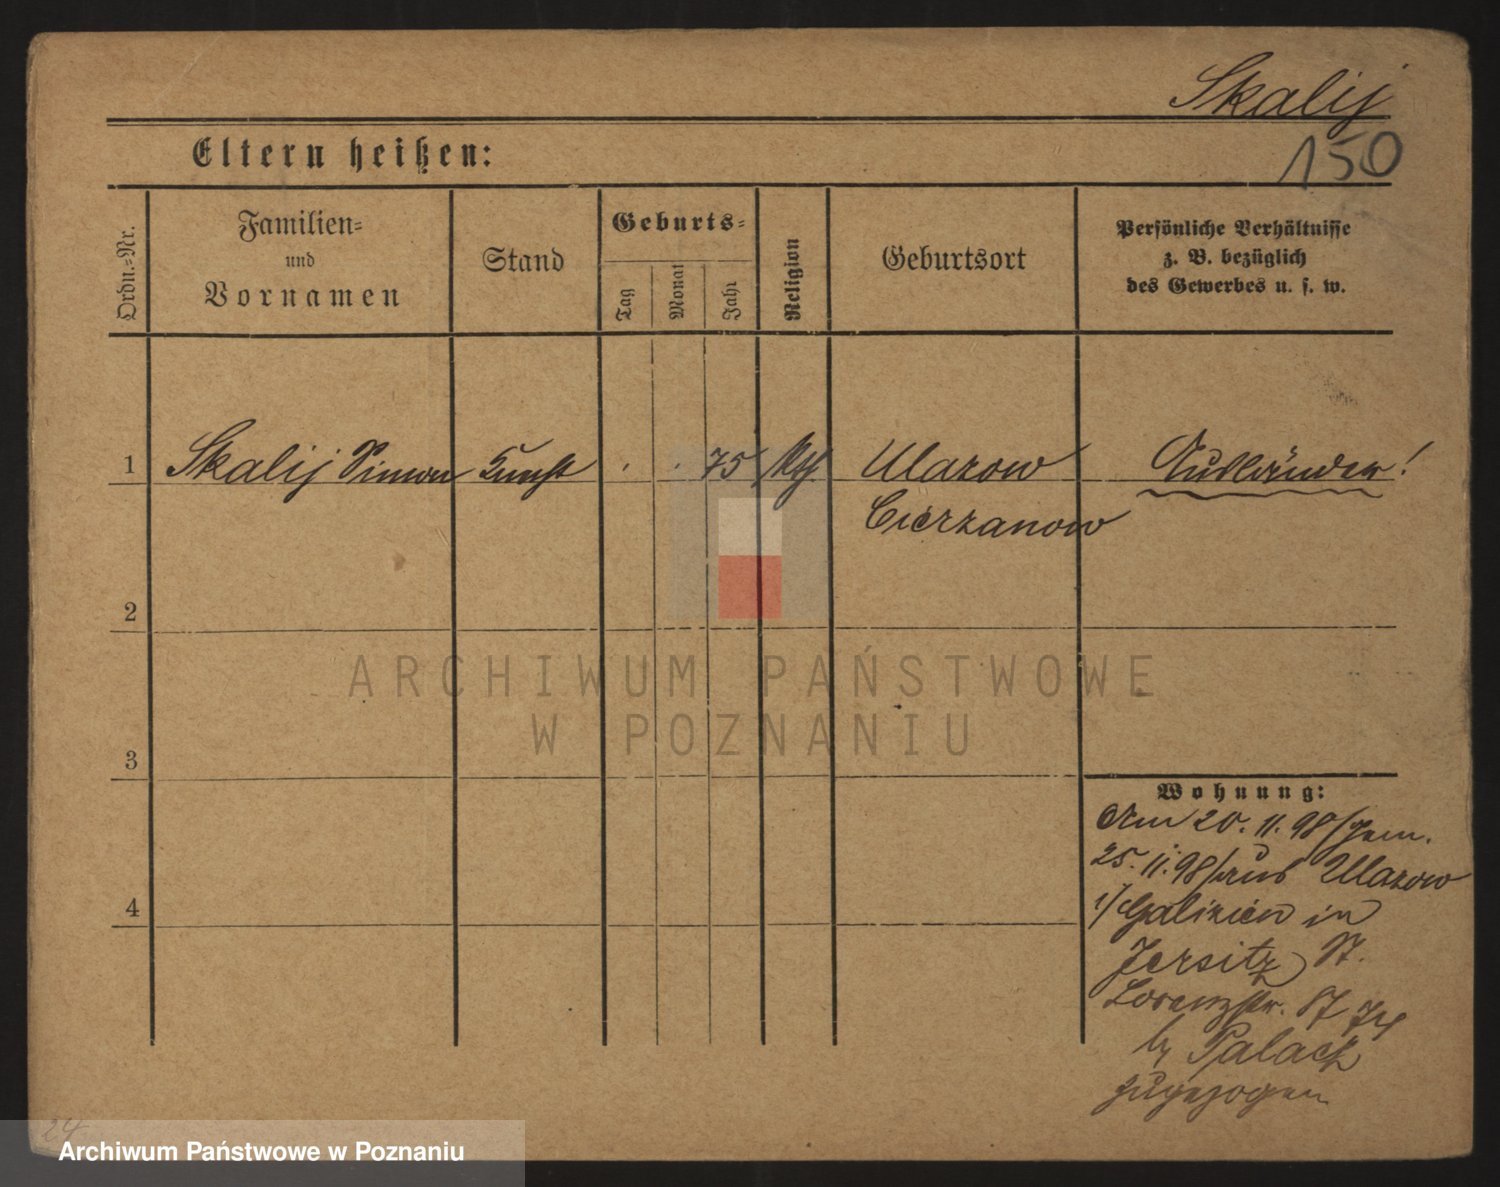 Skalij
150
Eltern heißen:
Ordn.-Nr.
Familien-
und
Vornamen
Stand
Geburts-
Tag
Monat
Jahr
Religion
Geburtsort
Persönliche Verhältnisse
z. B. bezüglich
des Gewerbes u. s. w.
1 Skalij Simon 75 kth Ulazow Ausländer!
Cierzanow
2
3
4
Wohnung:
Am 20. 11. 98/
25. 11. 98/aus Ulazow
i/Galizien in
Jersitz St.
Lorenzstr.
b/ Palack
zugezogen
24
ARCHIWUM PAŃSTWOWE
W POZNANIU
Archiwum Państwowe w Poznaniu